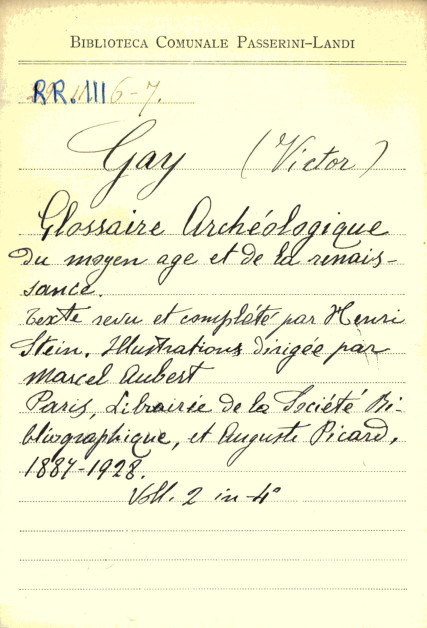 BIBLIOTECA COMUNALE PASSERINI-LANDI
RR. III 6-7.
Gay (Victor)
Glossaire Archéologique
du moyen age et de la renais-
sance.
Texte revu et complété par Henri
Stein. Illustrations dirigée par
Marcel Aubert
Paris, Librairie de la Société Bi-
bliographique, et Auguste Picard,
1887-1928.
Voll. 2 in-4°